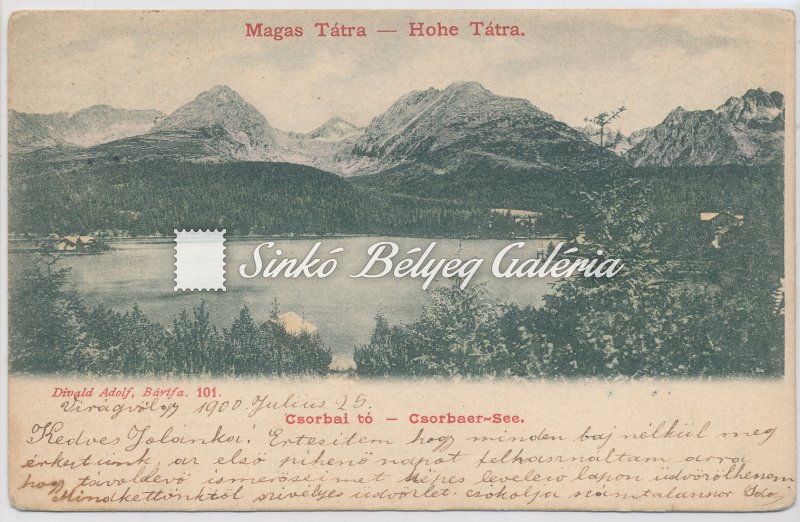 Magas Tátra — Hohe Tátra.
Sinkó Bélyeg Galéria
Divald Adolf, Bártfa. 101.
Virágvölgy 1900 Julius 25.
Csorbai tó — Csorbaer-See.
Kedves Jolánka! Értesitem hogy minden baj nélkül meg
érkeztünk, az első pihenő napot felhasználtam arra
hogy távollévő ismerőseimet képes levelező lapon üdvözölhessem
Mindkettőnktől szivélyes üdvözlet csókolja számtalanszor